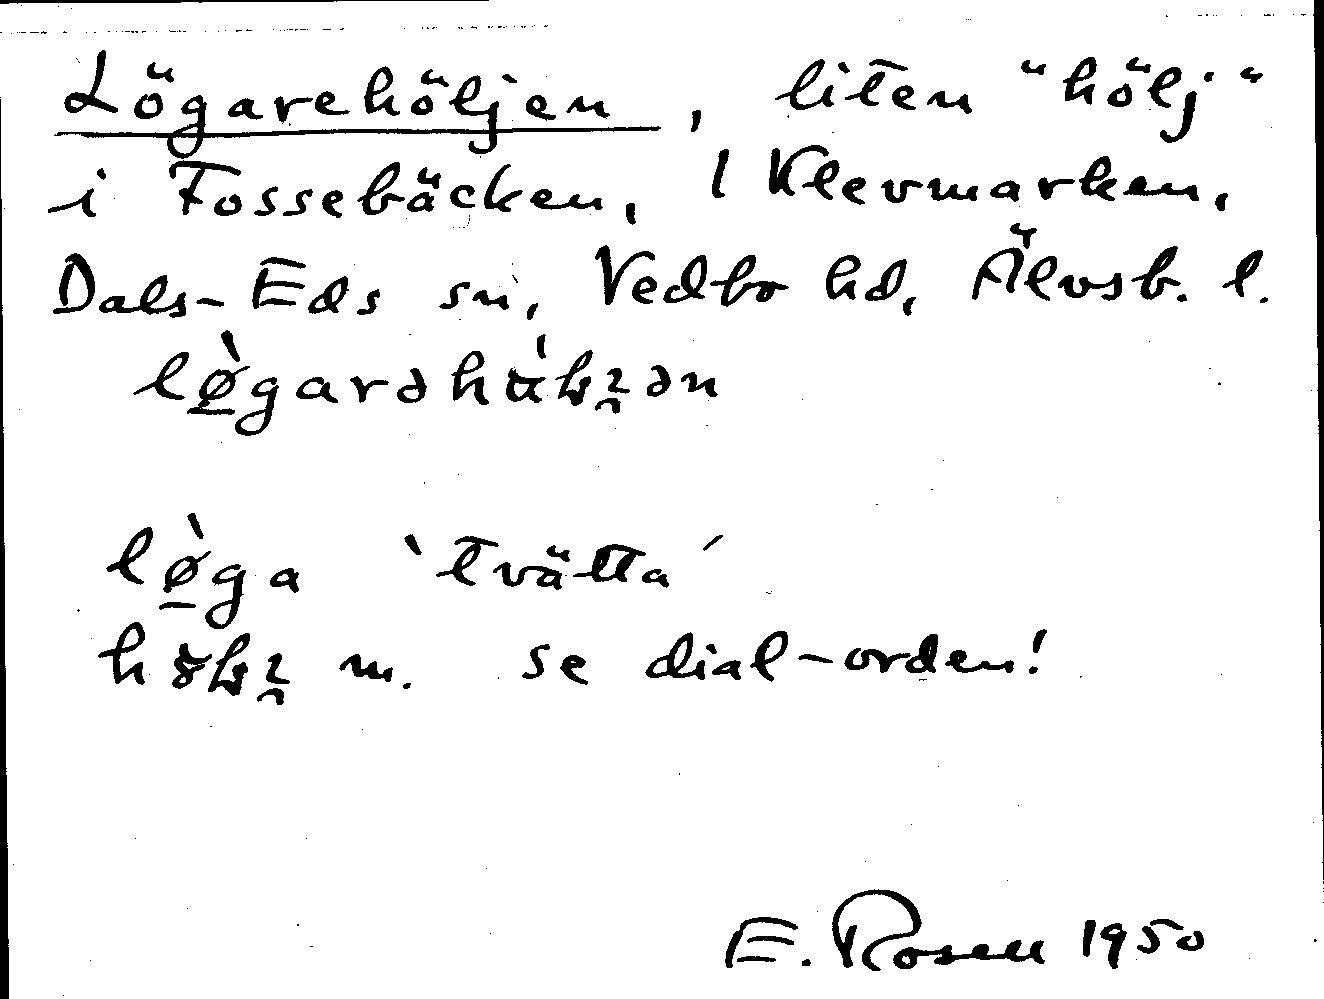 Lögarehöljen, liten "hölj"
i Fossebäcken, 1 Klevmarken,
Dals-Eds sn, Vedbo hd, Älvsb. l.
lø̠̀garəh
lø̠̀ga 'tvätta'
m. se dial-orden!
E. Rosen 1950